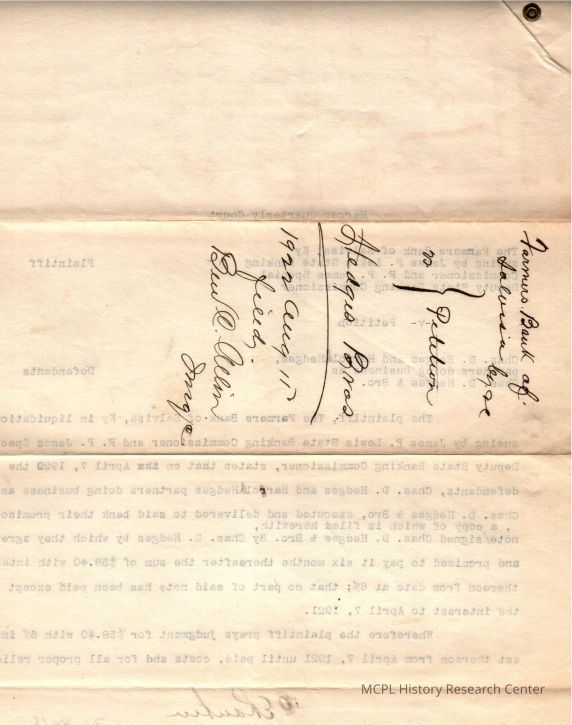 Farmers Bank of
Salvisa &c
vs } Petition
Hedges Bros
1922 Aug 17
filed,
Ben C. Allin
Mercer Quarterly Court
The Farmers Bank of Salvisa, Ky
sueing by James P. Lewis State Banking
Commissioner and F. P. James Special
Deputy State Banking Commissioner
Plaintiff
-v- Petition
Chas. D. Hedges and Harold Hedges,
partners doing business as
Chas. D. Hedges & Bro.
Defendants
The plaintiff, The Farmers Bank of Salvisa, Ky in liquidation
sueing by James P. Lewis State Banking Commissioner and F. P. James Spec
Deputy State Banking Commissioner, states that on the April 7, 1920 the
defendants, Chas. D. Hedges and Harold Hedges partners doing business as
Chas. D. Hedges & Bro, executed and delivered to said bank their promiso
, a copy of which is filed herewith,
note signed Chas. D. Hedges & Bro. By Chas. D. Hedges by which they agre
and promised to pay it six months thereafter the sum of $58.40 with inte
thereon from date at 6%; that no part of said note has been paid except
the interest to April 7, 1921.
Wherefore the plaintiff prays judgment for $58.40 with 6% in
est thereon from April 7, 1921 until paid, costs and for all proper relie
MCPL History Research Center